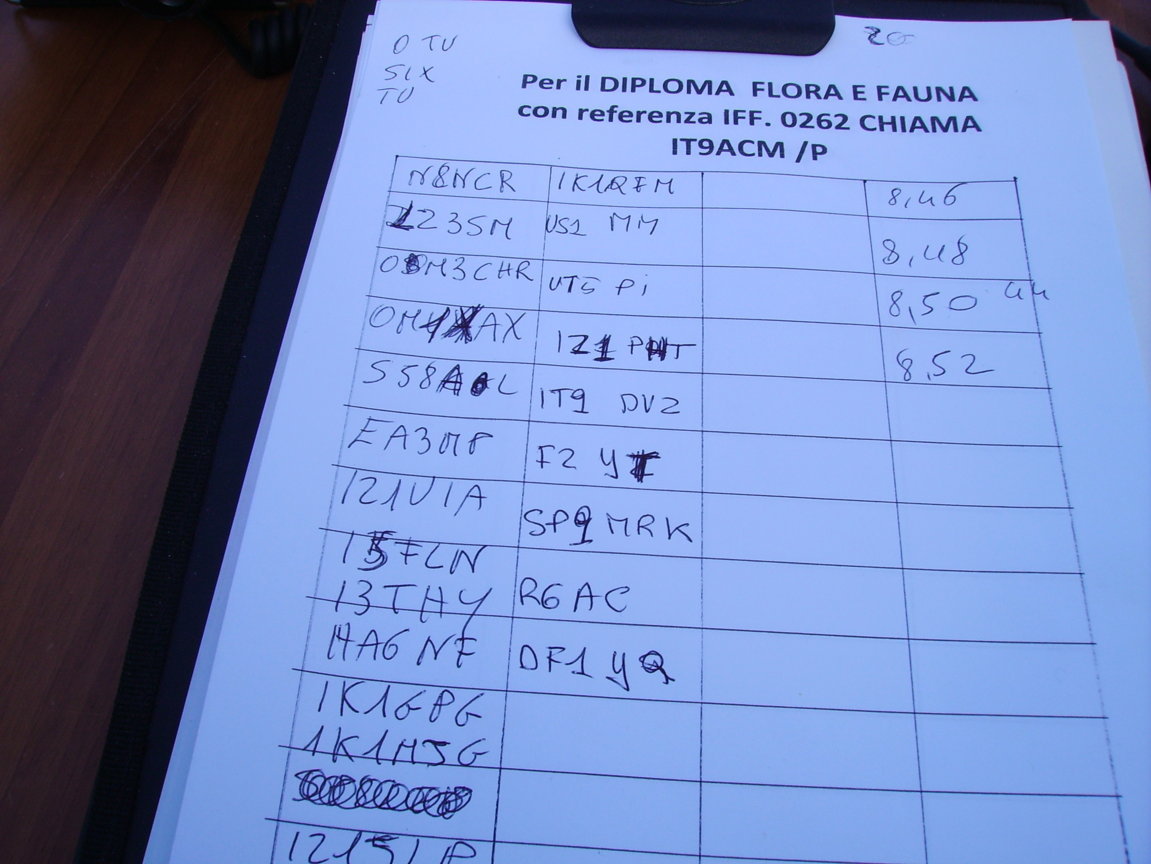 O TU
SIX
TU
Per il DIPLOMA FLORA E FAUNA
con referenza IFF. 0262 CHIAMA
IT9ACM /P
N8NCR IK1QFM 8,46
1Z3SM US1 MM 8,48
OM3CHR UT5 Pi 8,50 44
OM4XAX IZ1 PHT 8,52
S58AL IT9 DVZ
EA3MP F2 Y
IZ1VIA SP9 MRK
I5FLN
I3THY R6 AC
HA6NF DF1 YQ
IK1GPG
IK1MJG